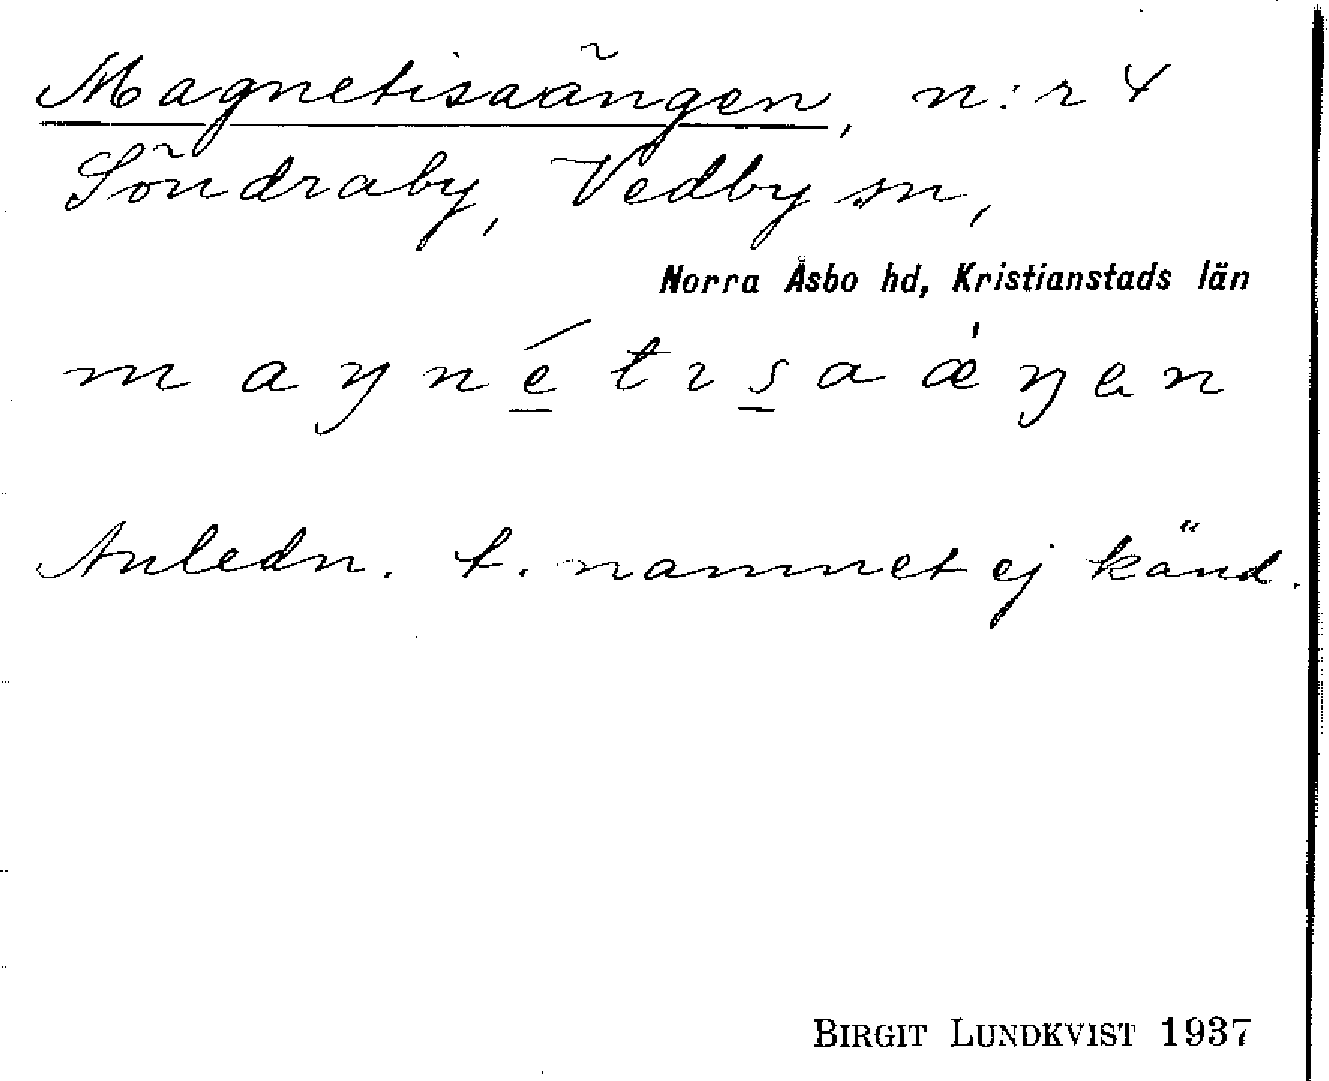 Magnetisaängen, n:r 4
Söndraby, Vedby sn,
Norra Åsbo hd, Kristianstads län
maŋnétɪsaæ̀ŋen
Anledn. t. namnet ej känd.
BIRGIT LUNDKVIST 1937